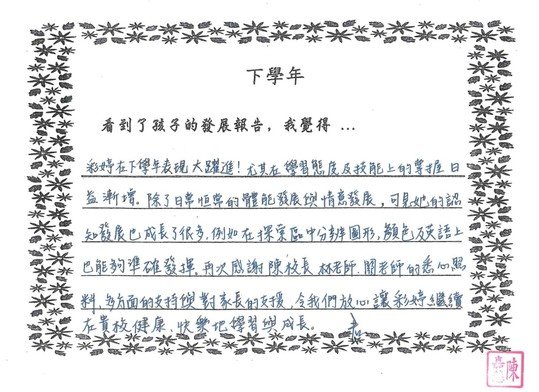 下學年
看到了孩子的發展報告，我覺得 ...
彩婷在下學年表現大躍進！尤其在學習態度及技能上的掌握日
益漸增。除了日常恒常的體能發展與情意發展，可見她的認
知發展已成長了很多，例如在探索區中分辨圖形，顏色及英語上
已能夠準確發揮。再次感謝陳校長，林老師，關老師的悉心照
料，多方面的支持與對家長的支援，令我們放心讓彩婷繼續
在貴校健康、快樂地學習與成長。
陳